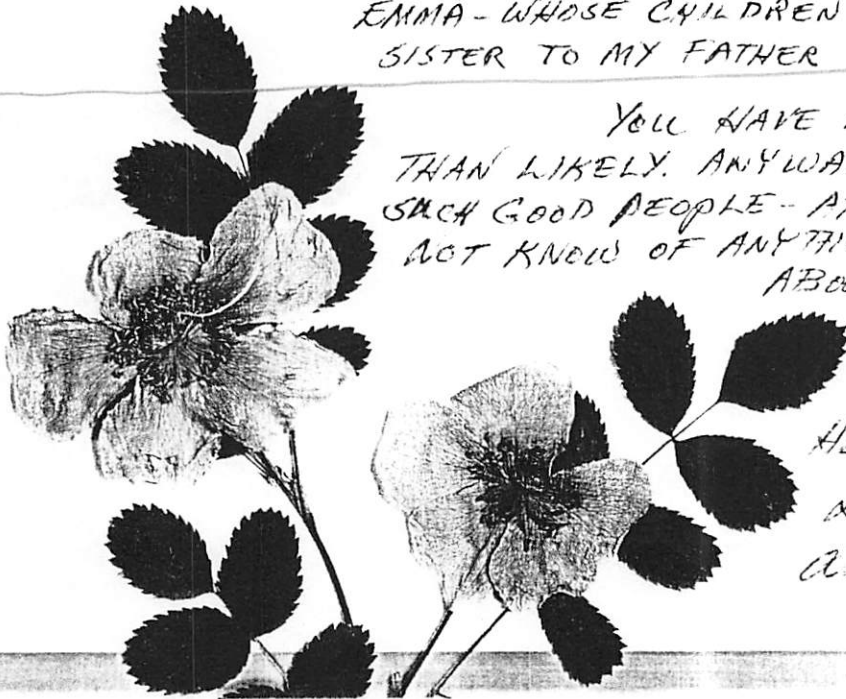 EMMA - WHOSE CHILDREN
SISTER TO MY FATHER
YOU HAVE
THAN LIKELY. ANYWA
SUCH GOOD PEOPLE - A
NOT KNOW OF ANYTHI
ABO